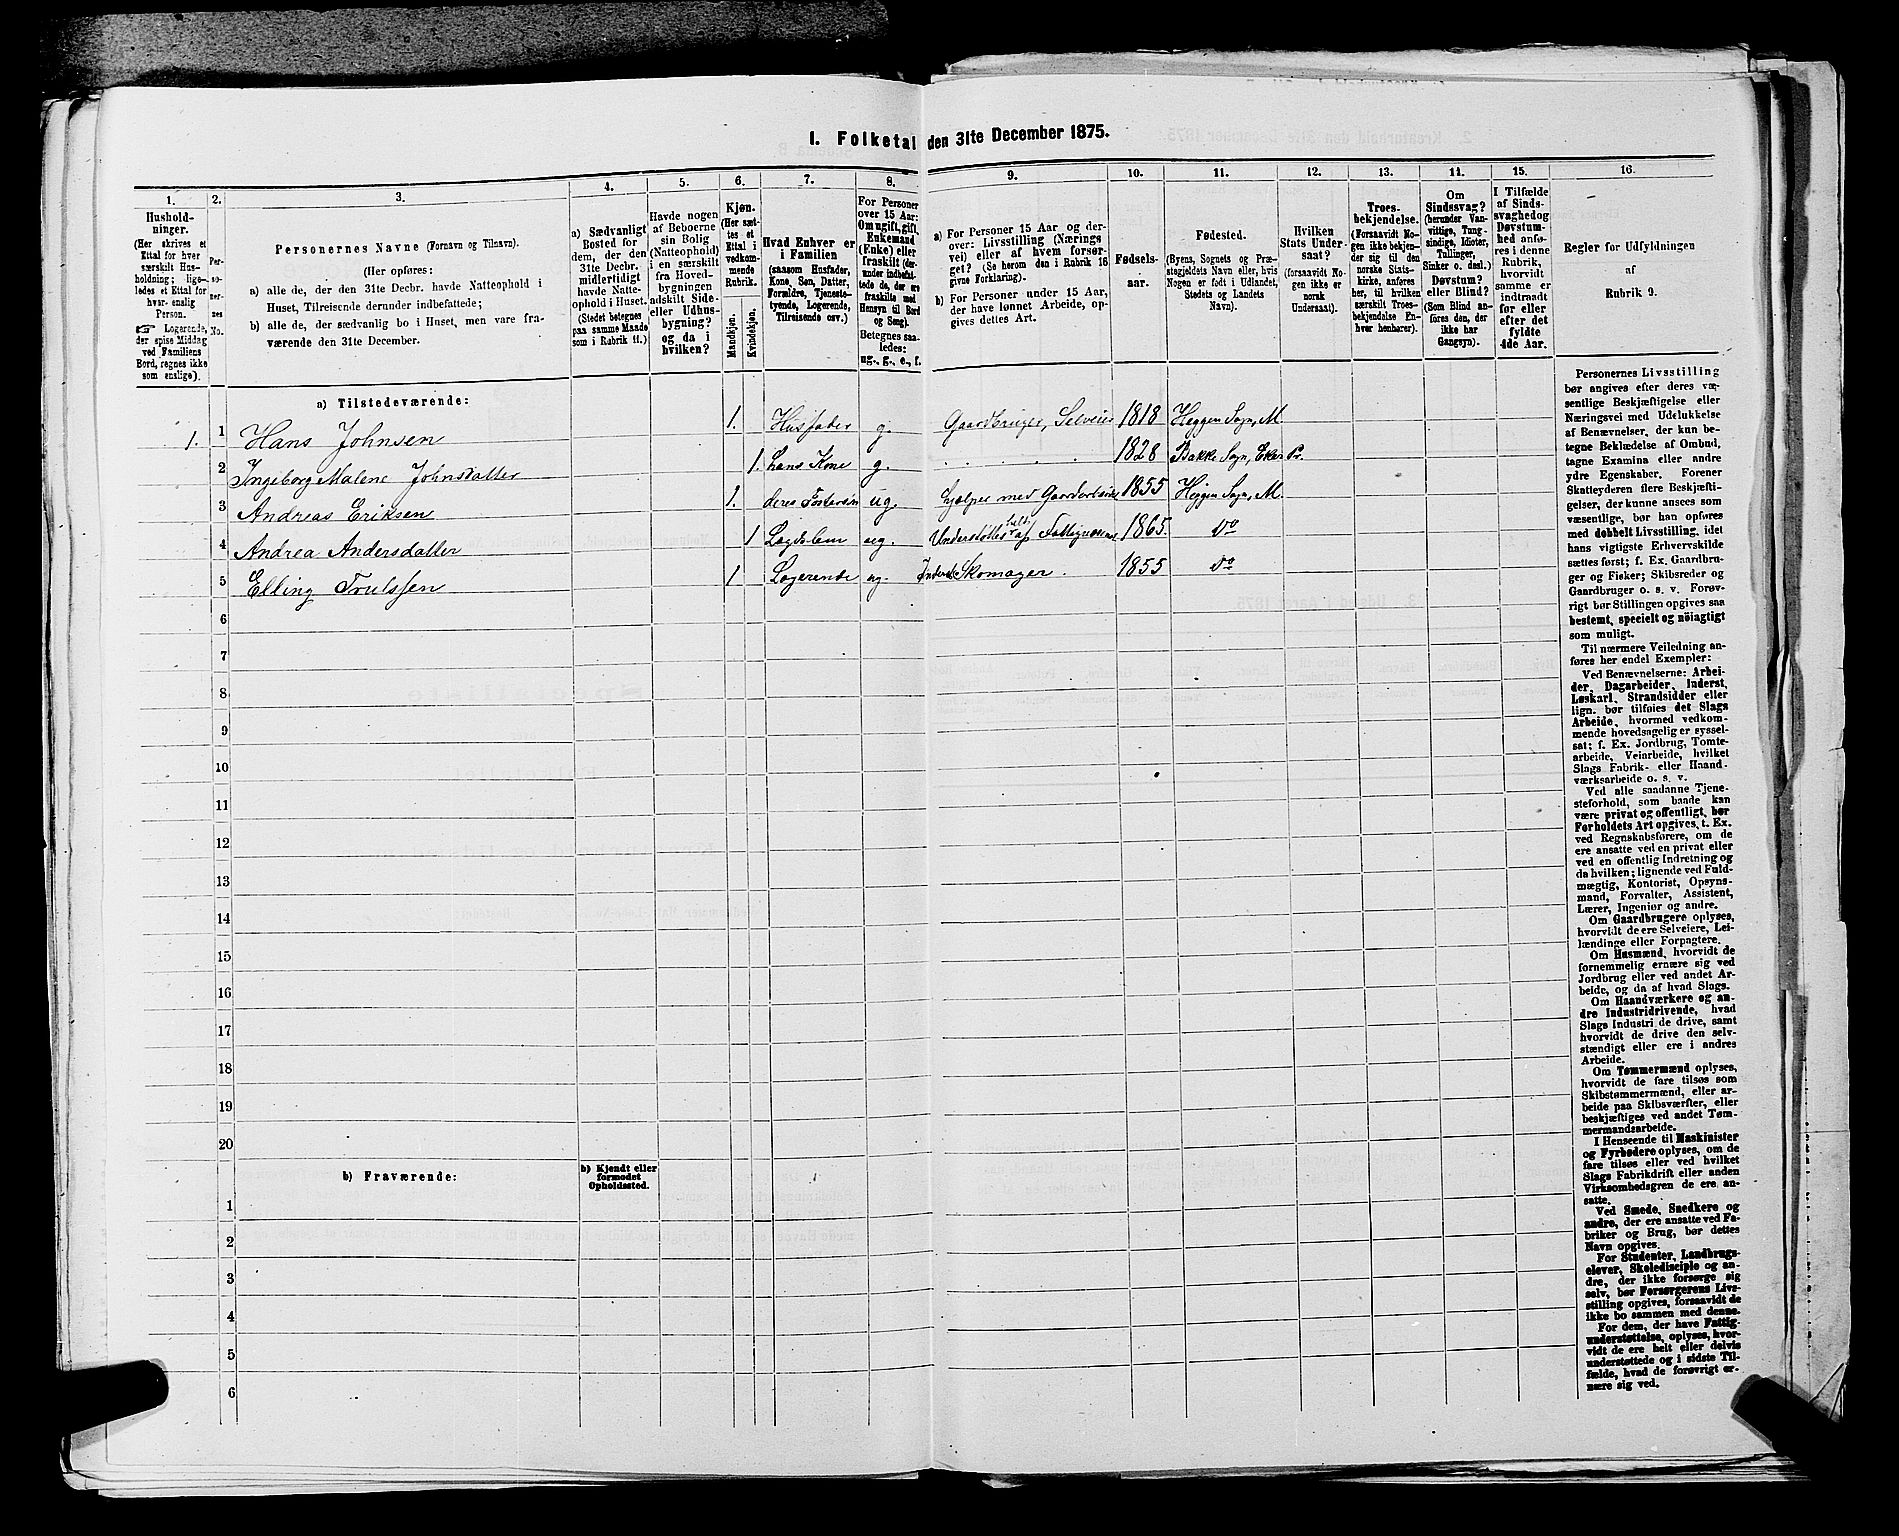 I. Folketal den 31te December 1875.
1.
Hushold-
ninger.
(Her skrives et
Ettal for hver
særskilt Hus-
holdning; lige-
ledes et Ettal for
hver enslig
Person.
☞ Logerende,
der spise Middag
ved Familiens
Bord, regnes ikke
som enslige).
2.
Per-
so-
ner-
nes
No.
3.
Personernes Navne (Fornavn og Tilnavn).
(Her opføres:
a) alle de, der den 31te Decbr. havde Natteophold i
Huset, Tilreisende derunder indbefattede;
b) alle de, der sædvanlig bo i Huset, men vare fra-
værende den 31te December.
4.
a) Sædvanligt
Bosted for
dem, der den
31te Decbr.
midlertidigt
havde Natte-
ophold i Huset.
(Stedet betegnes
paa samme Maade
som i Rubrik 11.)
5.
Havde nogen
af Beboerne
sin Bolig
(Natteophold)
i en særskilt
fra Hoved-
bygningen
adskilt Side-
eller Udhus-
bygning?
og da i
hvilken?
6.
Kjøn.
(Her sæt-
tes et
Ettal i
vedkom-
mende
Rubrik.
Mandkjøn.
Kvindekjøn.
7.
Hvad Enhver er
i Familien
(saasom Husfader,
Kone, Søn, Datter,
Forældre, Tjeneste-
tyende, Logerende,
Tilreisende osv.)
8.
For Personer
over 15 Aar:
Om ugift, gift,
Enkemand
(Enke) eller
fraskilt (der-
under indbefat-
tede de, der ere
fraskilte med
Hensyn til Bord
og Seng).
Betegnes saa-
ledes:
ug., g., e., f.
9.
a) For Personer 15 Aar og der-
over: Livsstilling (Nærings-
vei) eller af hvem forsør-
get? (Se herom den i Rubrik 16
givne Forklaring).
b) For Personer under 15 Aar,
der have lønnet Arbeide, op-
gives dettes Art.
10.
Fødsels-
aar.
11.
Fødested.
(Byens, Sognets og Præ-
stegjeldets Navn eller, hvis
Nogen er født i Udlandet,
Stedets og Landets
Navn).
12.
Hvilken
Stats Under-
saat?
(forsaavidt No-
gen ikke er
norsk
Undersaat).
13.
Troes-
bekjendelse.
(Forsaavidt No-
gen ikke bekjen-
der sig til den
norske Stats-
kirke, anføres
her, til hvilken
særskilt Troes-
bekjendelse En-
hver henhører).
14.
Om
Sindssvag?
(herunder Van-
vittige, Tung-
sindige, Idioter,
Tullinger,
Sinker o. desl.)
Døvstum?
eller Blind?
(Som Blind an-
føres den, der
ikke har
Gangsyn).
15.
I Tilfælde
af Sinds-
svaghed og
Døvstum-
hed anfø-
res i denne
Rubrik,
hvorvidt
samme er
indtraadt
før eller
efter det
fyldte
4de Aar.
16.
Regler for Udfyldningen
af
Rubrik 9.
a) Tilstedeværende:
1. 1 Hans Johnsen 1. Husfader g. Gaardbruger, Selveier 1818 Heggen Sogn, M.
2 Ingeborg Malene Johnsdatter 1. hans Kone g. 1828 Bakke Sogn, Eker Pr.
3 Andreas Eriksen 1. deres Fostersøn ug. hjælper med Gaardarbeide 1855 Heggen Sogn, M.
4 Andrea Andersdatter 1 Lægdslem ug. Understøttes af Fattigvæsenet 1865. do
5 Elling Trulssen 1 Logerende ug. Skomager. 1855 do
6
7
8
9
10
11
12
13
14
15
16
17
18
19
20
b) Fraværende:
b) Kjendt eller
formodet
Opholdssted.
1
2
3
4
5
6
Personernes Livsstilling
bør angives efter deres væ-
sentlige Beskjæftigelse eller
Næringsvei med Udelukkelse
af Benævnelser, der kun be-
tegne Beklædelse af Ombud,
tagne Examina eller andre
ydre Egenskaber. Forener
Skatteyderen flere Beskjæfti-
gelser, der kunne ansees som
væsentlige, bør han opføres
med dobbelt Livsstilling, idet
hans vigtigste Erhvervskilde
sættes først; f. Ex. Gaardbru-
ger og Fisker; Skibsreder og
Gaardbruger o. s. v. Forøv-
rigt bør Stillingen opgives saa
bestemt, specielt og nöiagtigt
som muligt.
Til nærmere Veiledning an-
føres her endel Exempler:
Ved Benævnelserne: Arbei-
der, Dagarbeider, Inderst,
Løskarl, Strandsidder eller
lign. bør tilføies det Slags
Arbeide, hvormed vedkom-
mende hovedsagelig er syssel-
sat; f. Ex. Jordbrug, Tomte-
arbeide, Veiarbeide, hvilket
Slags Fabrik- eller Haand-
værksarbeide o. s. v.
Ved alle saadanne Tjene-
steforhold, som baade kan
være privat og offentligt, bør
Forholdets Art opgives, t. Ex.
ved Regnskabsførere, om de
ere ansatte ved en privat eller
ved en offentlig Indretning og
da hvilken; lignende ved Fuld-
mægtig, Kontorist, Opsyns-
mand, Forvalter, Assistent,
Lærer, Ingeniør og andre.
Om Gaardbrugere oplyses,
hvorvidt de ere Selveiere, Lei-
lændinge eller Forpagtere.
Om Husmænd, hvorvidt de
fornemmelig ernære sig ved
Jordbrug eller ved andet Ar-
beide, og da af hvad Slags.
Om Haandværkere og an-
dre Industridrivende, hvad
Slags Industri de drive, samt
hvorvidt de drive den selv-
stændigt eller ere i andres
Arbeide.
Om Tømmermænd oplyses,
hvorvidt de fare tilsøs som
Skibstømmermænd, eller ar-
beide paa Skibsværfter, eller
beskjæftiges ved andet Tøm-
mermandsarbeide.
I Henseende til Maskinister
og Fyrbødere oplyses, om de
fare tilsøs eller ved hvilket
Slags Fabrikdrift eller anden
Virksomhedsgren de ere an-
satte.
Ved Smede, Snedkere og
andre, der ere ansatte ved Fa-
briker og Brug, bør dettes
Navn opgives.
For Studenter, Landbrugs-
elever, Skoledisciple og an-
dre, der ikke forsørge sig
selv, bør Forsørgerens Livs-
stilling opgives, forsaavidt de
ikke bo sammen med denne.
For dem, der have Fattig-
understøttelse, oplyses, hvor-
vidt de ere helt eller delvis
understøttede og i sidste Til-
fælde, hvad de forøvrigt er-
nære sig ved.